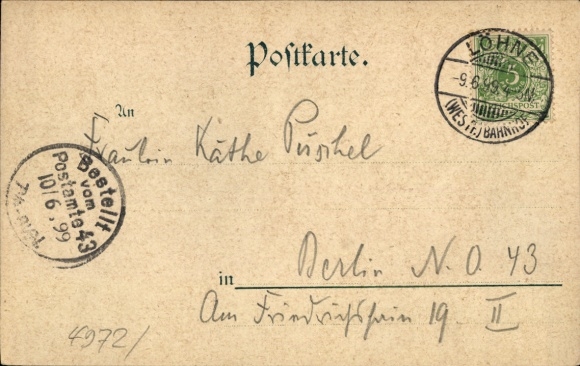 Postkarte.
LÖHNE
9.6.99
(WESTF.) BAHNHOF
5
REICHSPOST
An
Fräulein Käthe Püschel
Bestellt
vom
Postamte 43
10/6.99
in Berlin N.O. 43
Am Friedrichshain 19 II
4972/